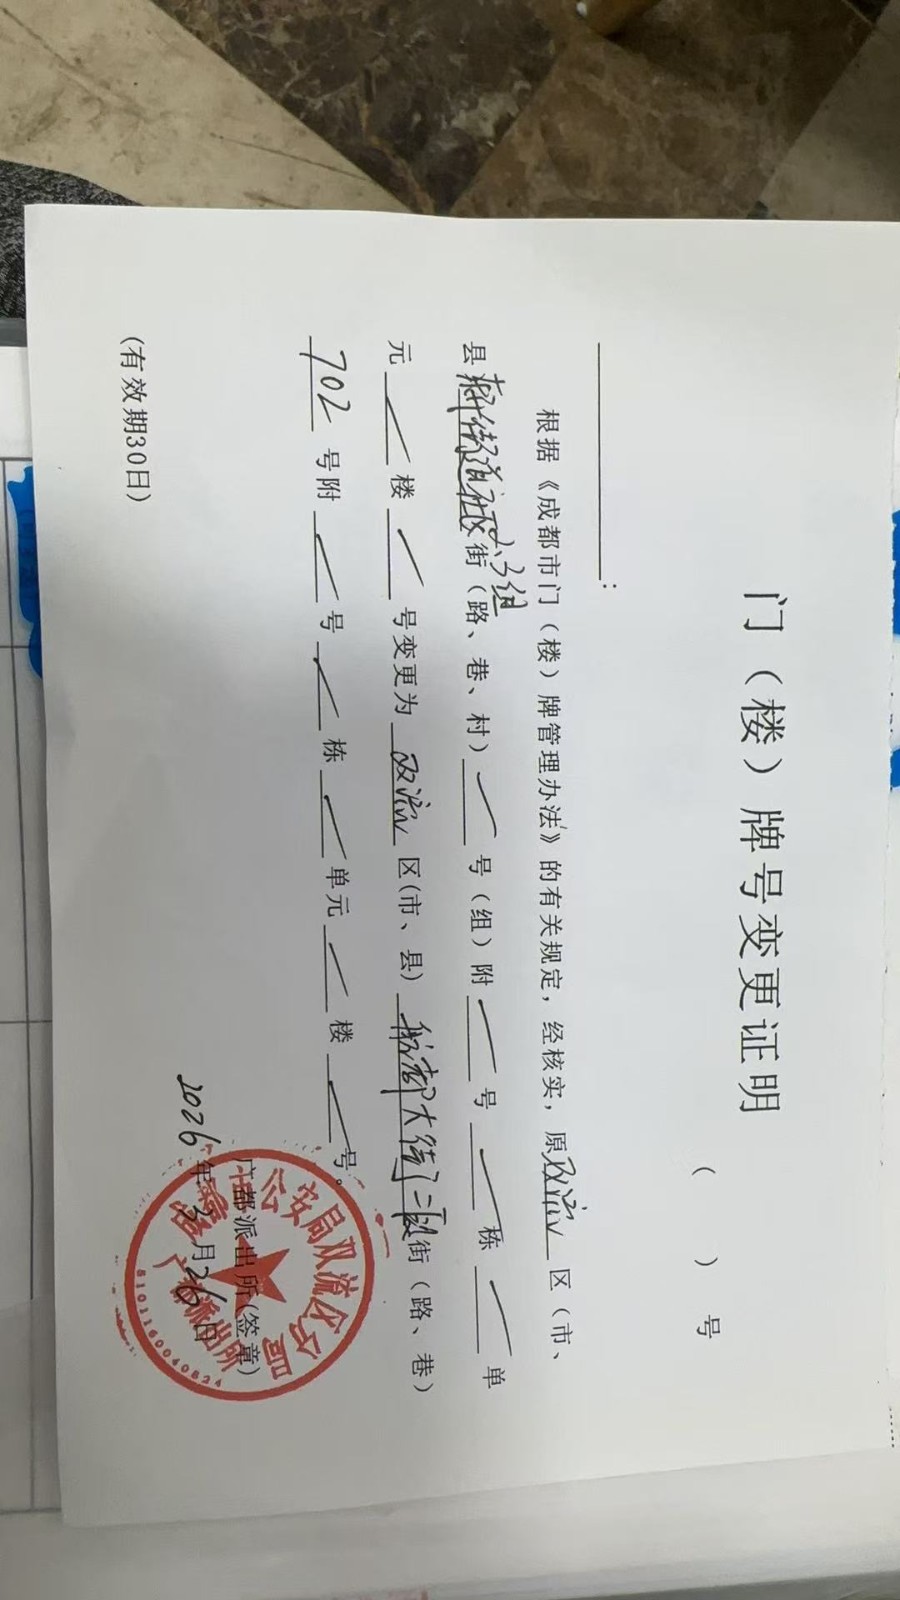 门（楼）牌号变更证明
（ ）号
：
根据《成都市门（楼）牌管理办法》的有关规定，经核实，原双流区（市、
县 街道 社区2、3组街（路、巷、村）号（组）附号栋单
元楼号变更为双流区(市、县)航都大街二段街（路、巷）
702号附号栋单元楼号。
广都派出所(签章)
2026年3月26日
(有效期30日)
成都市公安局双流区分局
广都派出所
5101160040824